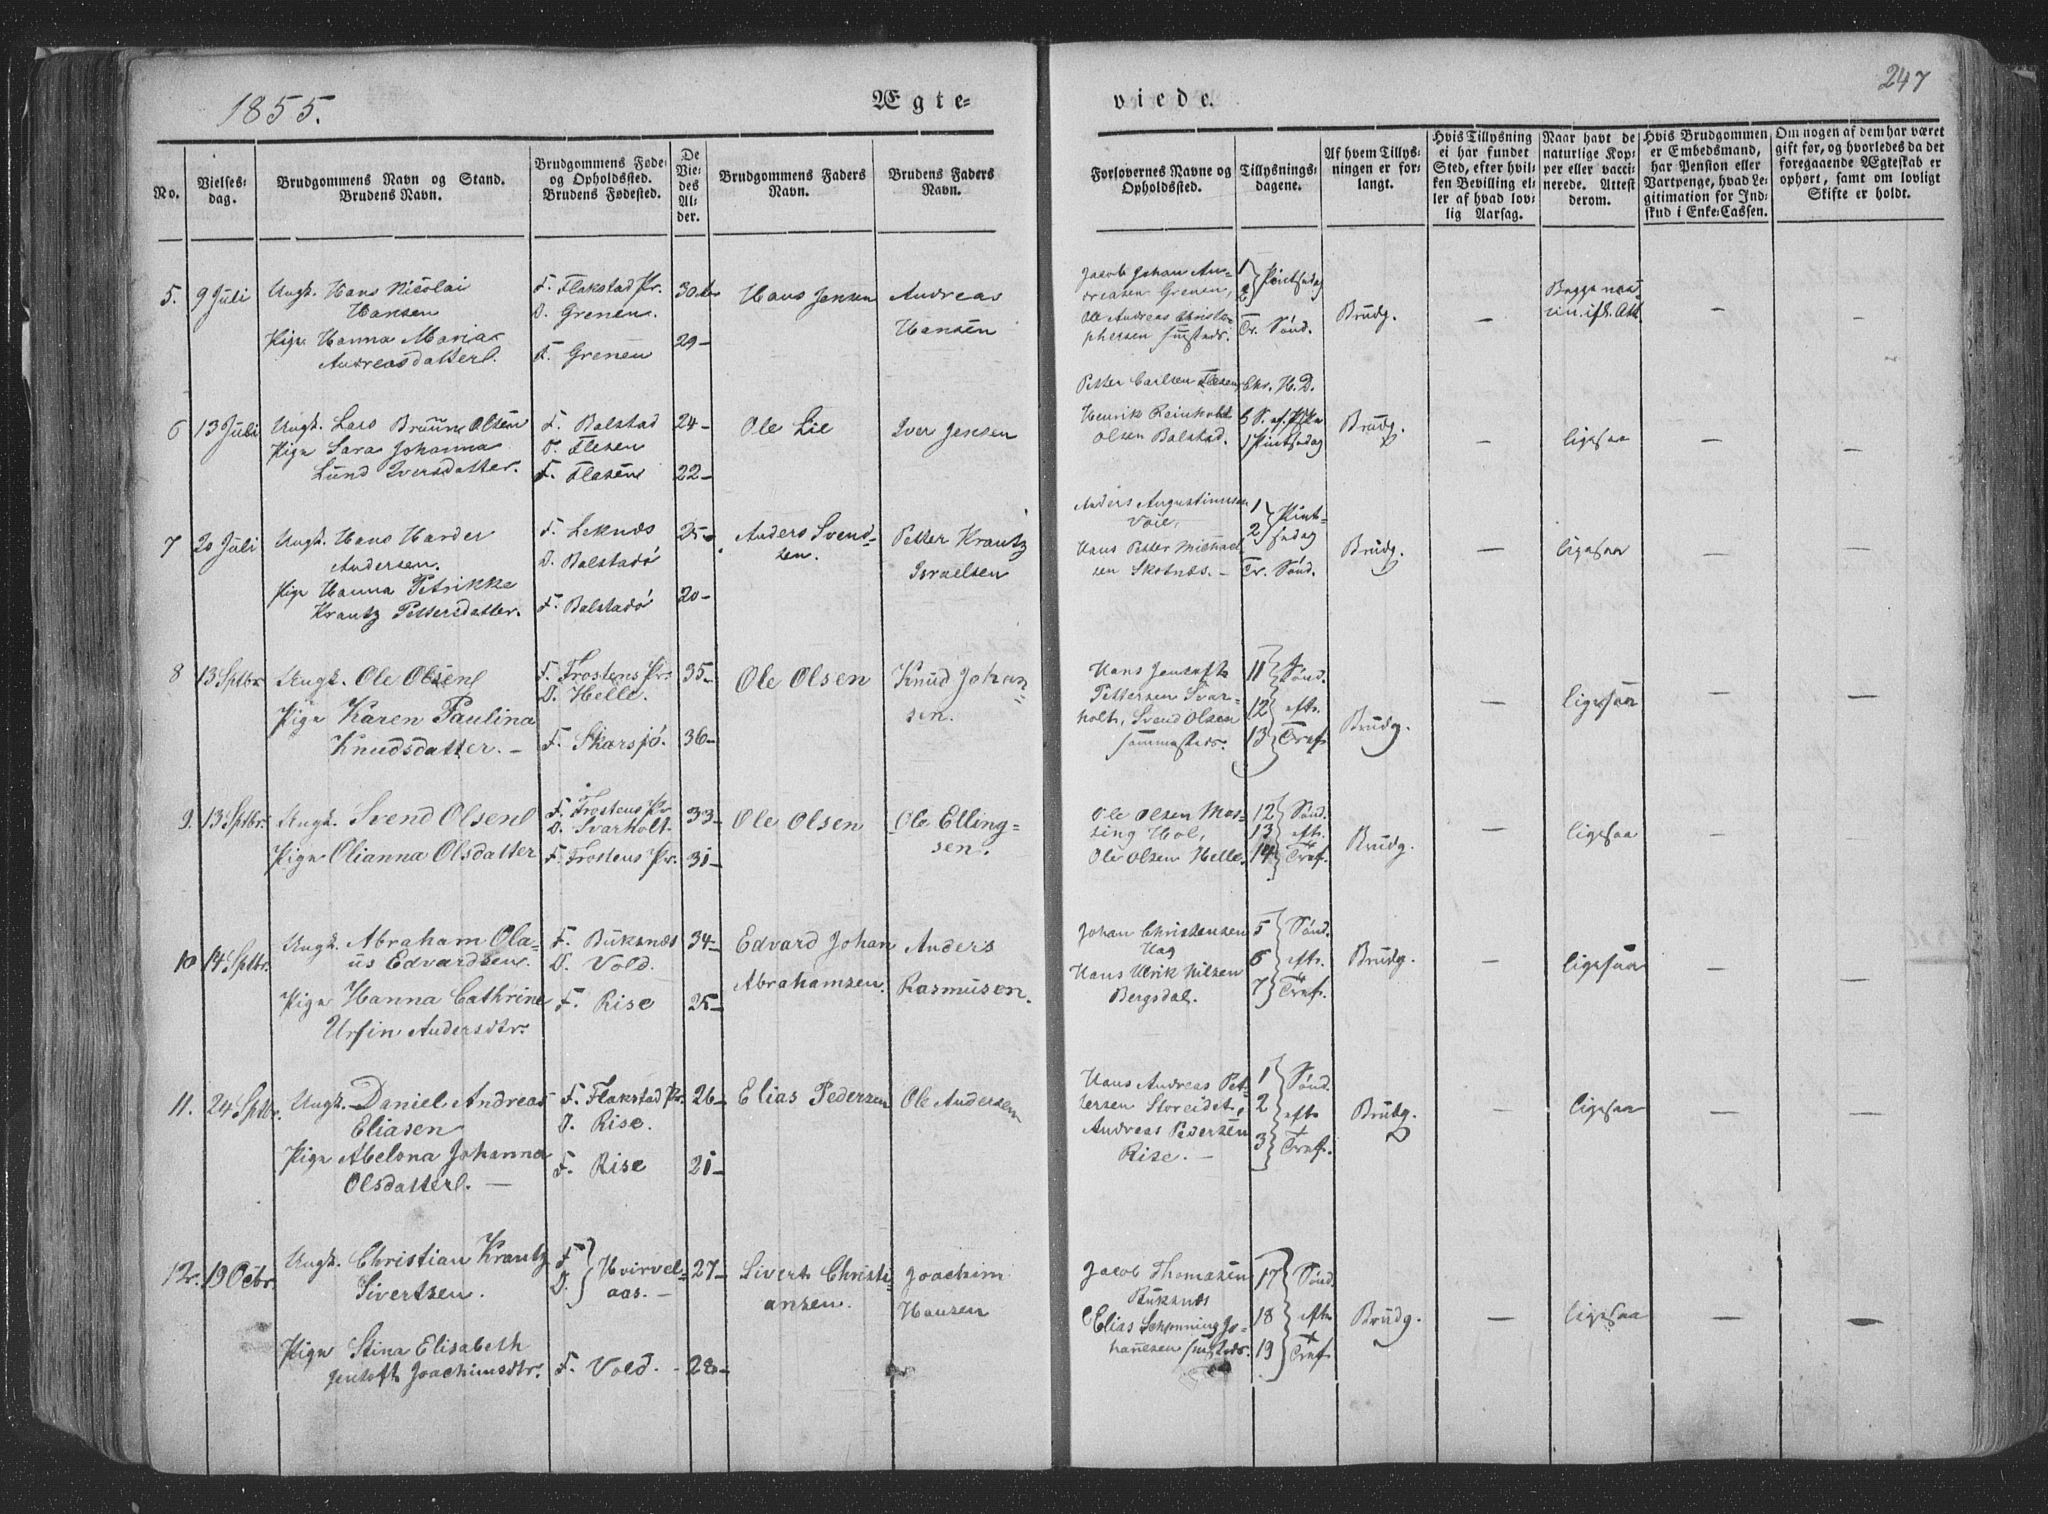 1855.
Ægte=
viede.
247
No.
Vielses-
dag.
Brudgommens Navn og Stand.
Brudens Navn.
Brudgommens Føde-
og Opholdssted.
Brudens Fødested.
De
Vie-
des
Al-
der.
Brudgommens Faders
Navn.
Brudens Faders
Navn.
Forlovernes Navne og
Opholdssted.
Tillysnings-
dagene.
Af hvem Tillys-
ningen er for-
langt.
Hvis Tillysning
ei har fundet
Sted, efter hvil-
ken Bevilling el-
ler af hvad lov-
lig Aarsag.
Naar havt de
naturlige Kop-
per eller vacci-
nerede. Attest
derom.
Hvis Brudgommen
er Embedsmand,
har Pension eller
Vartpenge, hvad Le-
gitimation for Ind-
skud i Enke-Cassen.
Om nogen af dem har været
gift før, og hvorledes da det
foregaaende Ægteskab er
ophørt, samt om lovligt
Skifte er holdt.
5. 9 Juli
Ungk. Hans Nicolai
Hansen
Pige Hanna Maria
Andreasdatter
F. Flakstad Pr.
O. Grenen.
F. Grenen
30 Aar
29-
Hans Jensen
Andreas
Hansen
Jacob Johan An-
dreasen Grenen,
Ole Andreas Christo-
phersen
1
2 } Pintsedag
Tr. Sönd.
Brudg.
-
Begge
-
-
6 13 Juli
Ungk. Lars Bruun Olsen
Pige Sara Johanna
Lund Iversdatter.
F. Balstad
O. Flesen
F. Flesen
24-
22-
Ole Lie
Iver Jensen
Petter Carlsen Flesen,
Henrik Reinholdt
Olsen Balstad.
Chr. H. D.
6 S. ef. Paaske
1 Pintsedag
Brudg.
-
ligesaa
-
-
7 20 Juli
Ungk. Hans Harder
Andersen.
Pige Hanna Petrikke
Krantz Pettersdatter.
F. Leknæs
O. Balstadö
F. Balstadö
25-
20-
Anders Svend-
sen.
Petter Krantz
Israelsen
Anders Augustinusen
Voie,
Hans Petter Michael-
sen Skotnæs. -
1
2 } Pint-
sedag
Tr. Sönd.
Brudg.
-
ligesaa
-
-
8 13 Sptbr.
Ungk. Ole Olsen
Pige Karen Paulina
Knudsdatter. -
F. Trostens Pr.
O. Helle.
F. Skarsjö.
35-
36-
Ole Olsen
Knud Johan-
sen.
Hans Jentoft
Pettersen Svar-
holt, Svend Olsen
sammesteds.
11
12
13 } Sönd.
eftr.
Tref.
Brudg.
-
ligesaa
-
-
9. 13 Sptbr.
Ungk. Svend Olsen
Pige Olianna Olsdatter
F. Trostens Pr.
O. Svarholt.
F. Trostens Pr.
33-
31-
Ole Olsen
Ole Elling-
sen.
Ole Olsen Mas-
sing Hol,
Ole Olsen Helle.
12
13
14 } Sönd.
eftr.
Tref.
Brudg.
-
ligesaa
-
-
10 14 Sptbr.
Ungk. Abraham Ola-
us Edvardsen.
Pige Hanna Cathrine
Ursin Andersdtr.
F. Buksnæs
O. Vold.
F. Rise
34-
25-
Edvard Johan
Abrahamsen.
Anders
Rasmusen.
Johan Christensen
Hag
Hans Ulrik Nilsen
Bergsdal.
5
6
7 } Sönd.
eftr.
Tref.
Brudg.
-
ligesaa
-
-
11. 24 Sptbr.
Ungk. Daniel Andreas
Eliasen
Pige Abelona Johanna
Olsdatter. -
F. Flakstad Pr.
O. Rise.
F. Rise
26-
21-
Elias Pedersen
Ole Andersen
Hans Andreas Pet-
tersen Storeidet,
Andreas Pedersen
Rise. -
1
2
3 } Sönd.
eftr
Tref.
Brudg.
-
ligesaa
-
-
12. 19 Octbr.
Ungk. Christian Krantz
Sivertsen.
Pige Stina Elisabeth
Jentoft Joachimsdtr.
F.
O. } Hvirvel-
aas. -
F. Vold. -
27-
28-
Sivert Christi-
ansen.
Joachim
Hansen
Jacob Thomasen
Buksnæs
Elias Schønning Jo-
hannesen
17
18
19 } Sönd.
eftr
Tref.
Brudg.
-
ligesaa
-
-